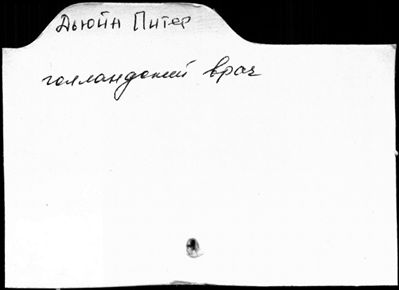 Дьюйн Питер
голландский врач